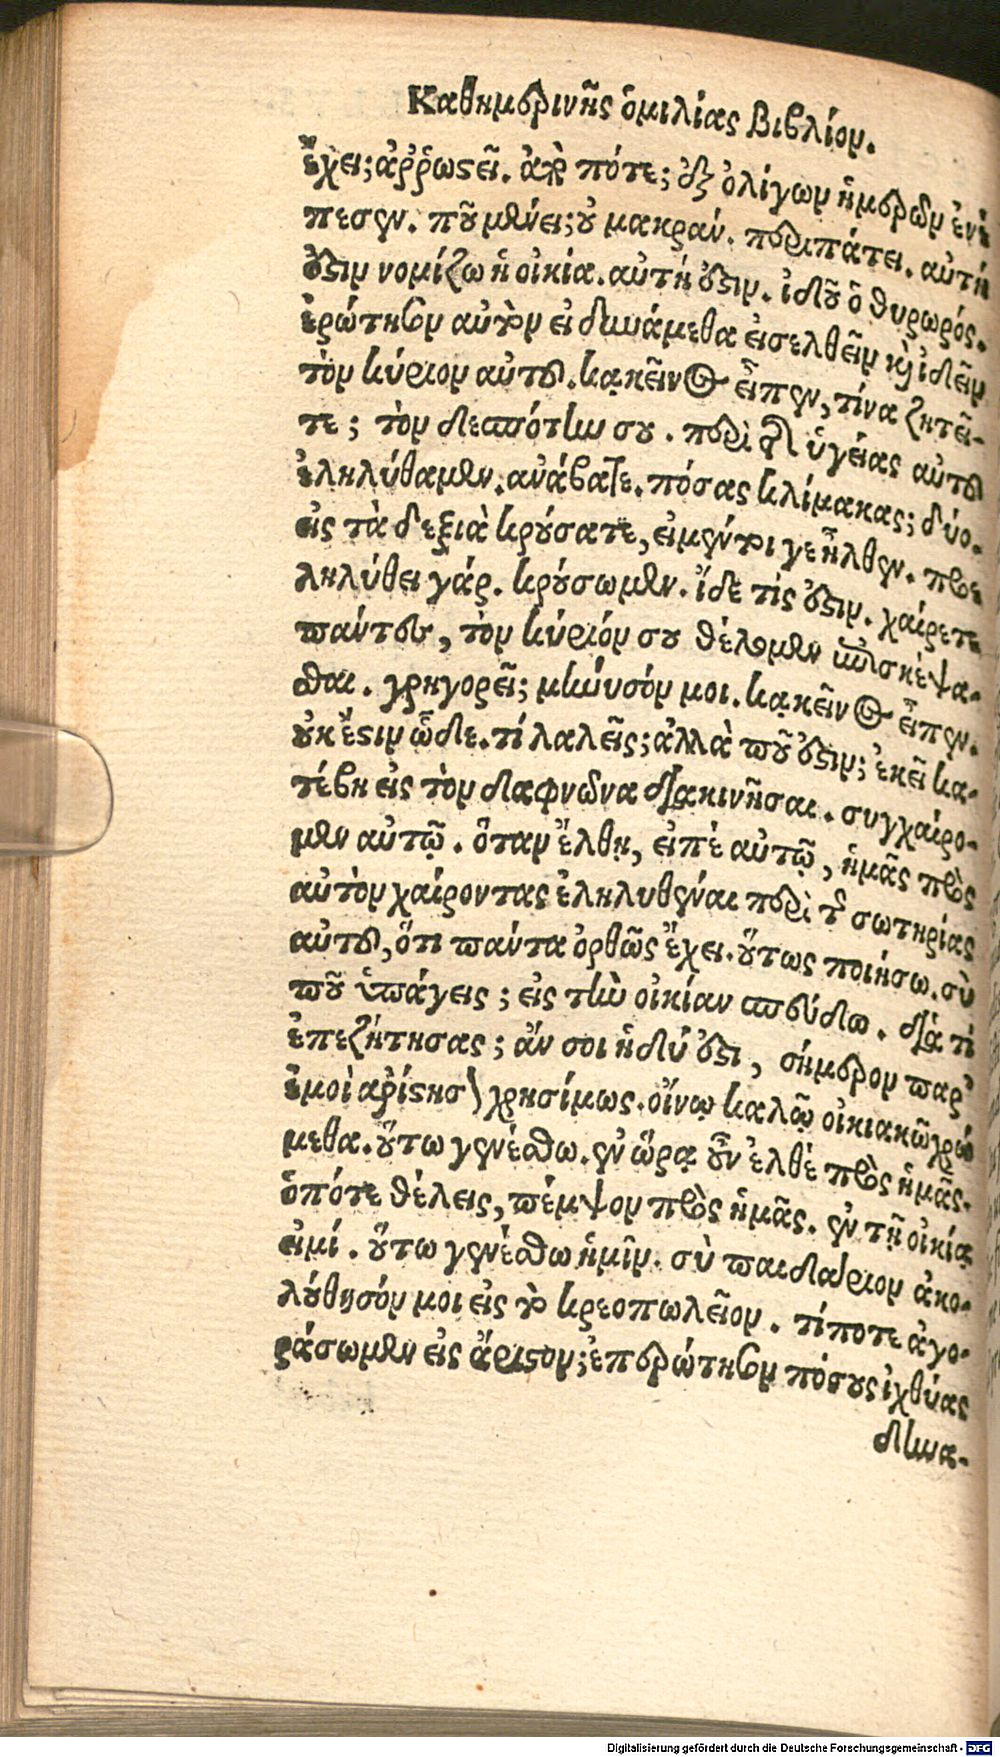 Καθημερινῆς ὁμιλίας Βιβλίον.
ἔχει; ἀῤῥωστεῖ. ἀπὸ πότε; ἐξ ὀλίγων ἡμερῶν ἐνέ
πεσεν. ποῦ μένει; οὐ μακράν. περιπάτει. αὐτή
ἐστιν νομίζω ἡ οἰκία. αὐτή ἐστιν. ἰδοῦ ὁ θυρωρός.
ἐρώτησον αὐτὸν εἰ δυνάμεθα εἰσελθεῖν καὶ ἰδεῖν
τὸν κύριον αὐτοῦ. κᾳκεῖνος εἶπεν, τίνα ζητεῖ-
τε; τὸν δεσπότην σου. περὶ τῆς ὑγείας αὐτοῦ
ἐληλύθαμεν. ἀνάβατε. πόσας κλίμακας; δύο.
εἰς τὰ δεξιὰ κρούσατε, εἰ μέντοι γε ἦλθεν. προε
ληλύθει γάρ. κρούσωμεν. ἴδε τίς ἐστιν. χαίρετε
πάντες, τὸν κύριόν σου θέλομεν ἐπισκέψα-
σθαι. γρηγορεῖ; μήνυσόν μοι. κᾳκεῖνος εἶπεν.
οὐκ ἔστιν ὧδε. τί λαλεῖς; ἀλλὰ ποῦ ἐστιν; ἐκεῖ κα-
τέβη εἰς τὸν δαφνῶνα διακινῆσαι. συγχαίρο-
μεν αὐτῷ. ὅταν ἔλθῃ, εἰπὲ αὐτῷ, ἡμᾶς πρὸς
αὐτὸν χαίροντας ἐληλυθέναι περὶ τῆς σωτηρίας
αὐτοῦ, ὅτι πάντα ὀρθῶς ἔχει. οὕτως ποιήσω. σὺ
ποῦ ὑπάγεις; εἰς τὴν οἰκίαν σπεύδω. διὰ τί
ἐπεζήτησας; ἄν σοι ἡδύ ἐστι, σήμερον παρ'
ἐμοὶ ἀρίστησον χρησίμως. οἴνῳ καλῷ οἰκιακῶ χρώ
μεθα. οὕτω γενέσθω. ἐν ὥρᾳ οὖν ἐλθὲ πρὸς ἡμᾶς.
ὁπότε θέλεις, πέμψον πρὸς ἡμᾶς. ἐν τῇ οἰκίᾳ
εἰμί. οὕτω γενέσθω ἡμῖν. σὺ παιδάριον ἀκο-
λούθησόν μοι εἰς τὸ κρεοπωλεῖον. τί ποτε ἀγο-
ράσωμεν εἰς ἄριστον; ἐπερώτησον πόσους ἰχθύας
δυνα-
Digitalisierung gefördert durch die Deutsche Forschungsgemeinschaft - DFG